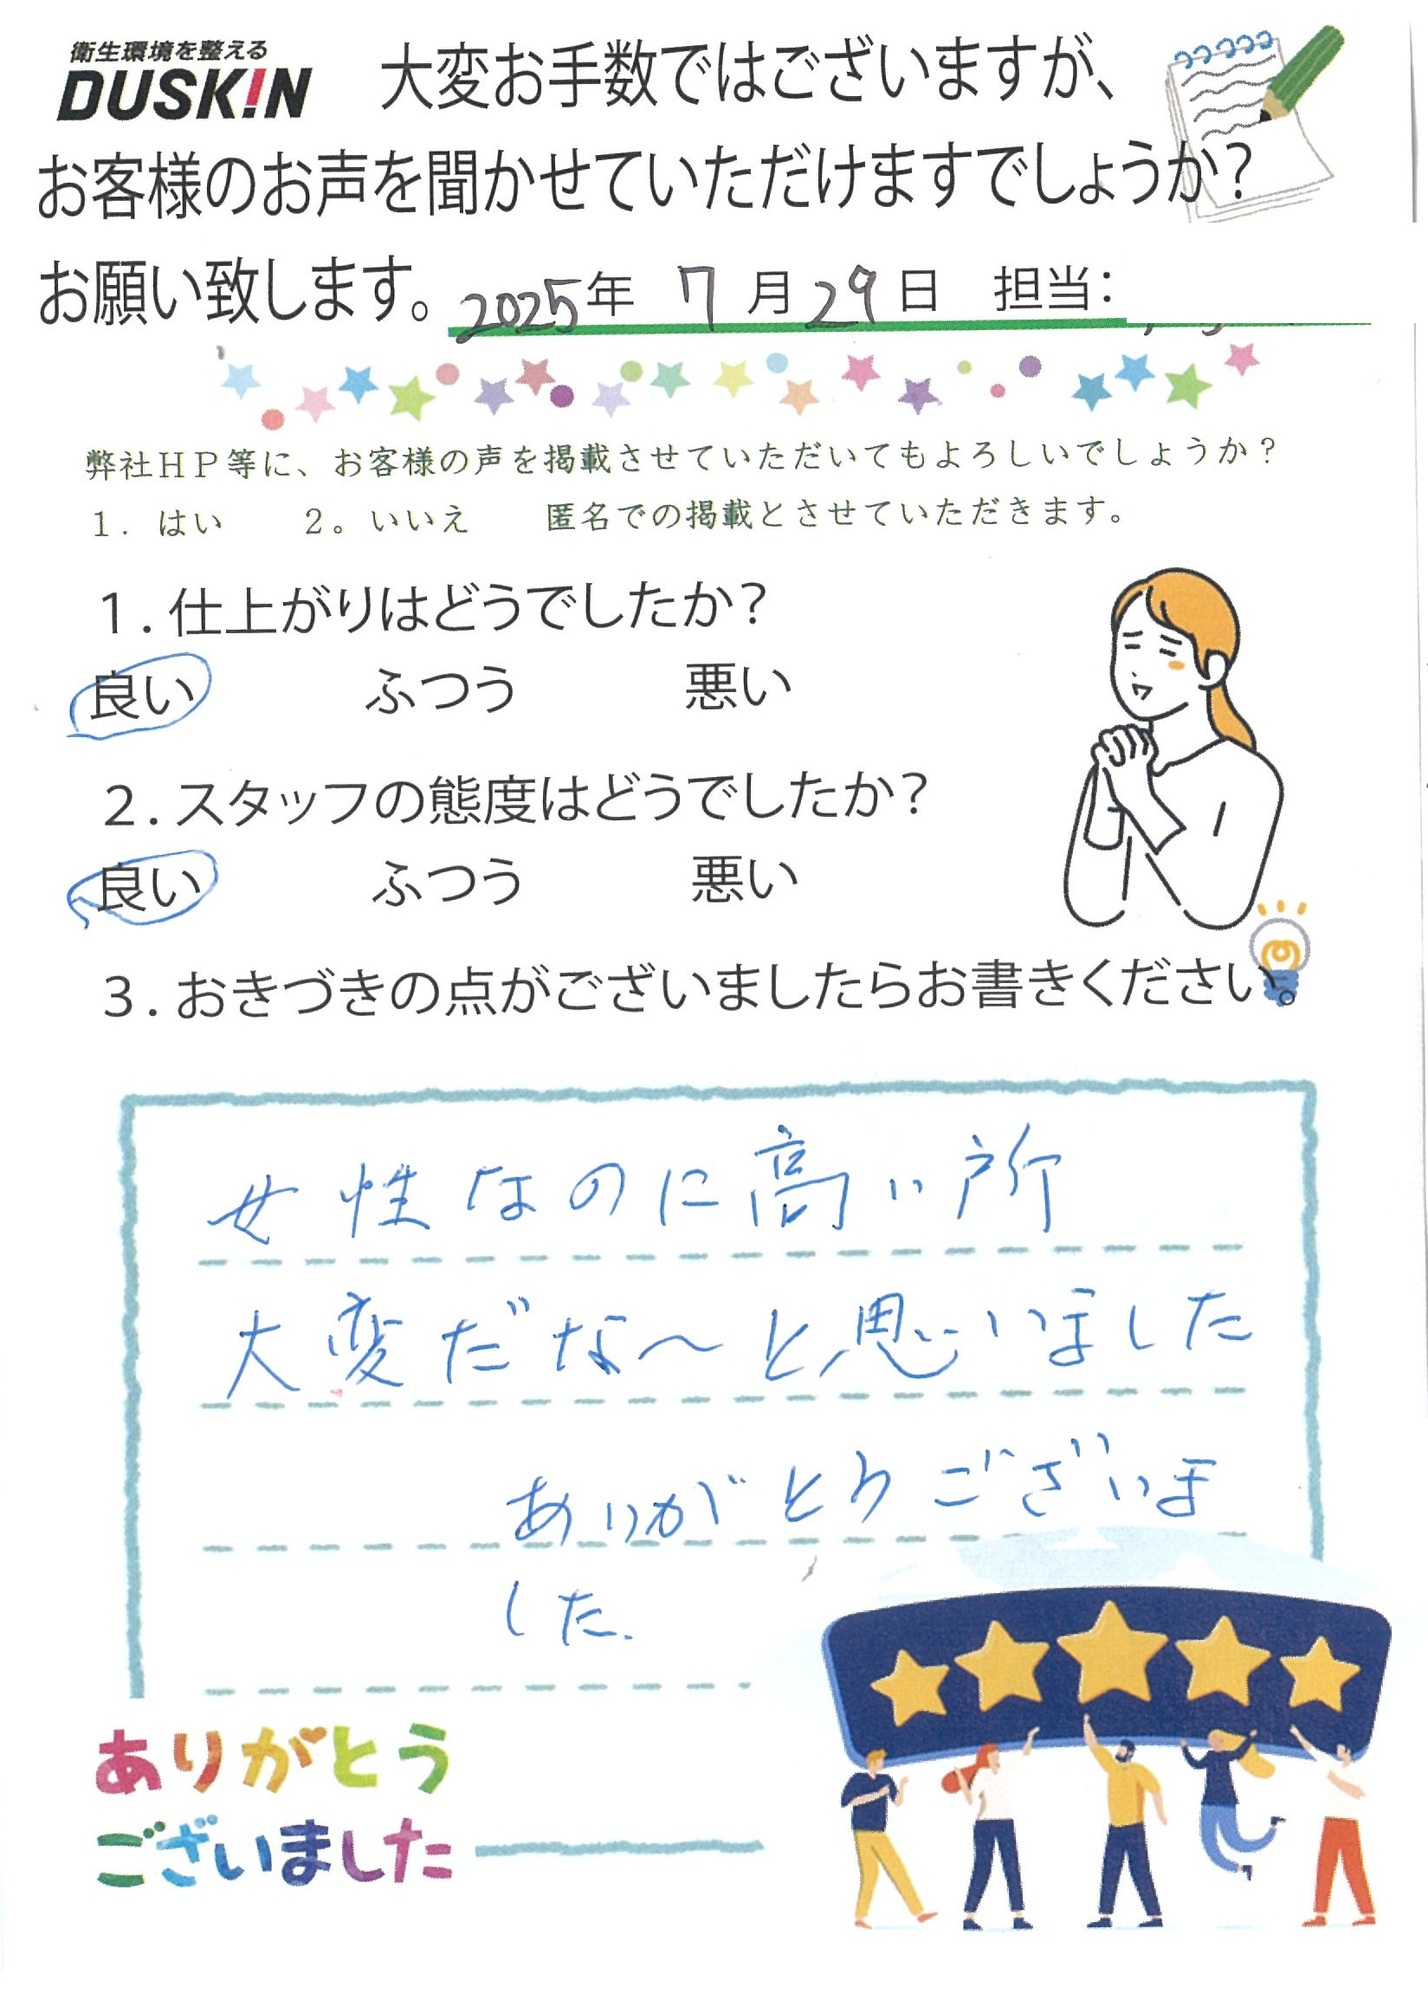 衛生環境を整える
DUSKIN 大変お手数ではございますが、
お客様のお声を聞かせていただけますでしょうか？
お願い致します。2025年 7月29日 担当：
弊社ＨＰ等に、お客様の声を掲載させていただいてもよろしいでしょうか？
１．はい ２。いいえ 匿名での掲載とさせていただきます。
１．仕上がりはどうでしたか？
良い ふつう 悪い
２．スタッフの態度はどうでしたか？
良い ふつう 悪い
３．おきづきの点がございましたらお書きください。
女性なのに高い所
大変だな〜と思いました
ありがとうございま
した.
ありがとう
ございました